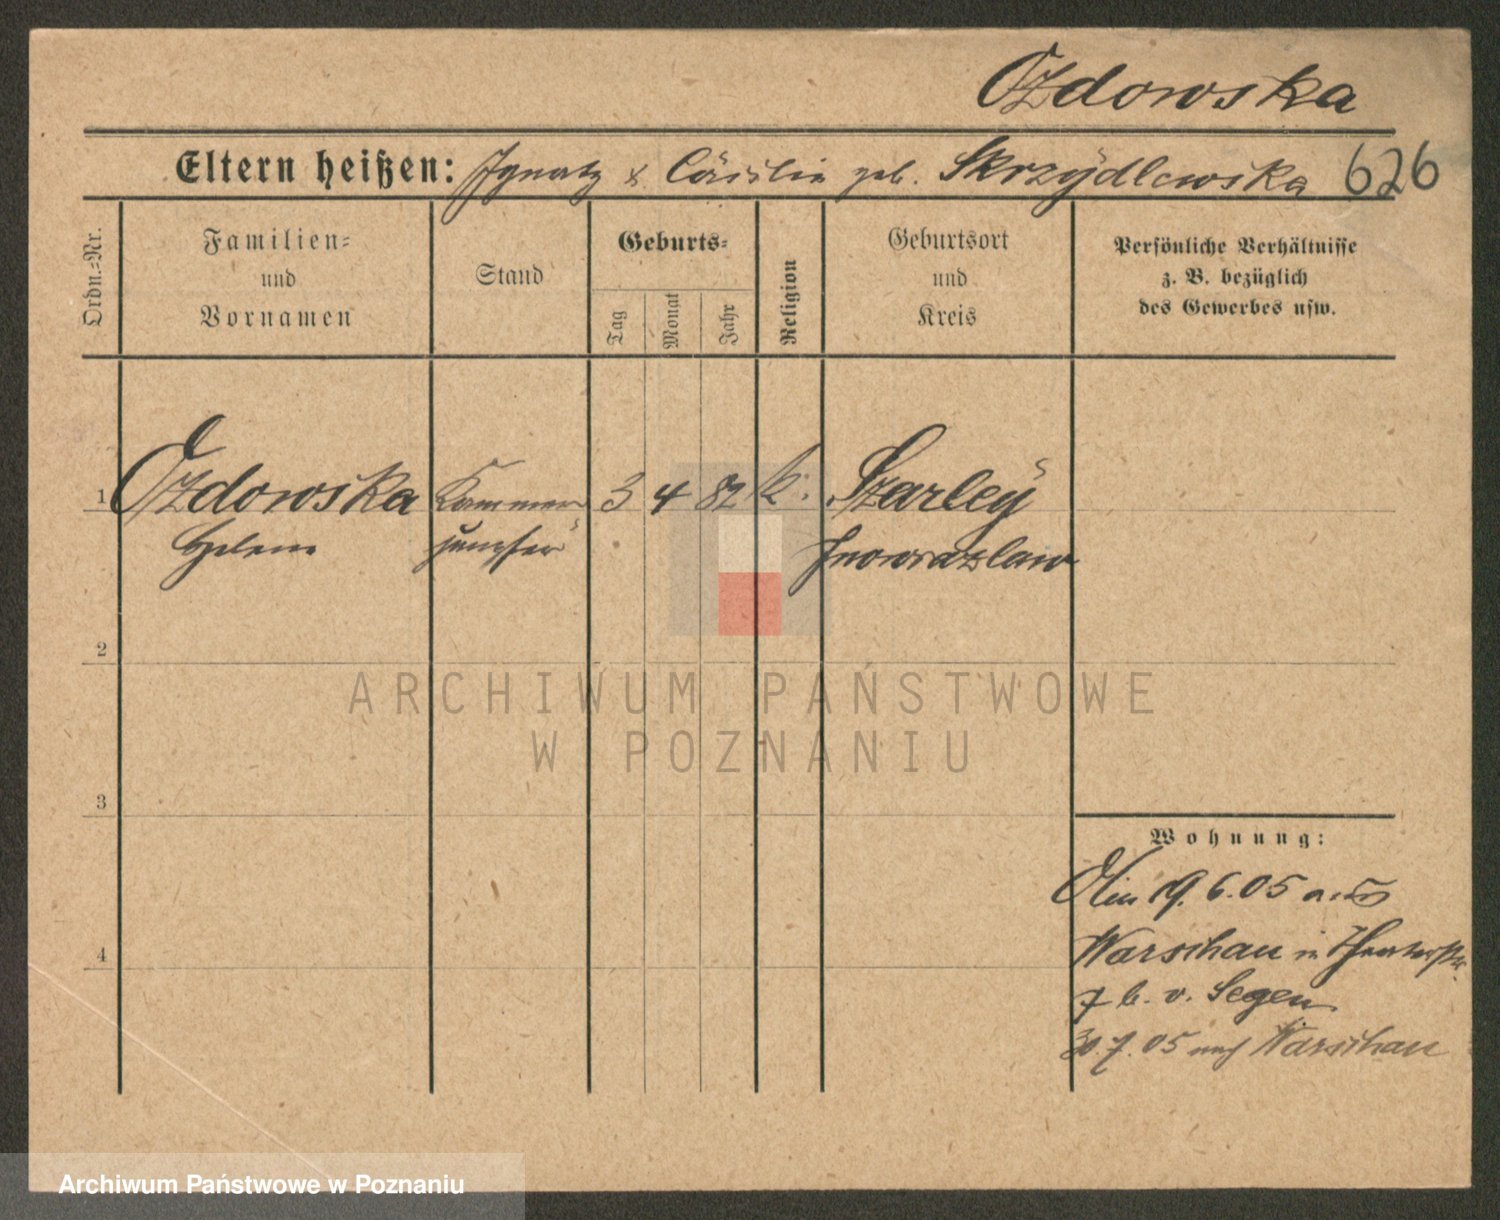 Ozdowska
Eltern heißen: Ignatz & Cäcilie geb. Skrzydlewska 626
Ordn.-Nr.
Familien-
und
Vornamen
Stand
Geburts-
Tag
Monat
Jahr
Religion
Geburtsort
und
Kreis
Persönliche Verhältnisse
z. B. bezüglich
des Gewerbes usw.
1 Ozdowska Kammer 3 4 82 k. Szarley
Helene jungfer Inowrazlaw
2
ARCHIWUM PAŃSTWOWE
W POZNANIU
3
Wohnung:
19. 6. 05 aus
4
Warschau in Theaterstr.
7 b. v. Segen
30. 7. 05 nach Warschau
Archiwum Państwowe w Poznaniu